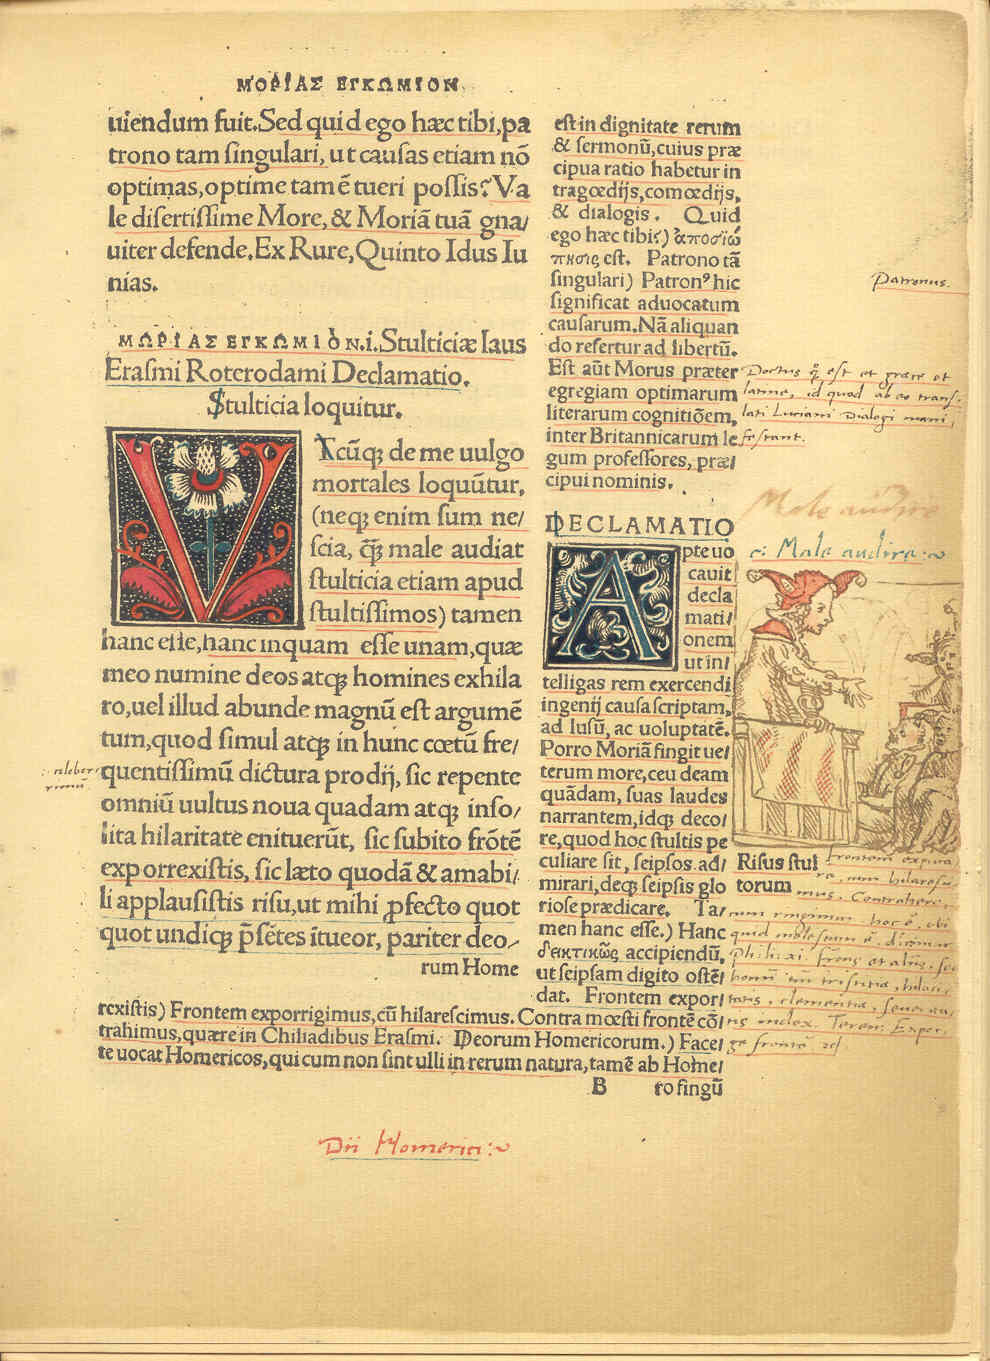 ΜΟΡΙΑΣ ΕΓΚΩΜΙΟΝ
uiendum fuit. Sed quid ego hæc tibi, pa
trono tam singulari, ut causas etiam nõ
optimas, optime tamẽ tueri possis? Va
le disertissime More, & Moriã tuã gna/
uiter defende. Ex Rure, Quinto Idus Iu
nias.
ΜΩΡΙΑΣ ΕΓΚΩΜΙΟΝ.i. Stulticiæ laus
Erasmi Roterodami Declamatio.
Stulticia loquitur.
VTcũq; de me uulgo
mortales loquũtur,
(neq; enim sum ne/
scia, q̃ male audiat
stulticia etiam apud
stultissimos) tamen
hanc esse, hanc inquam esse unam, quæ
meo numine deos atq; homines exhila
ro, uel illud abunde magnũ est argumẽ
tum, quod simul atq; in hunc cœtũ fre/
quentissimũ dictura prodij, sic repente
omniũ uultus noua quadam atq; inso/
lita hilaritate enituerũt, sic subito frõtẽ
exporrexistis, sic læto quodã & amabi/
li applausistis risu, ut mihi ꝓfecto quot
quot undiq; p̃sẽtes ĩtueor, pariter deo/
rum Home
est in dignitate rerum
& sermonũ, cuius præ
cipua ratio habetur in
tragœdijs, comœdijs,
& dialogis. Quid
ego hæc tibi?) ἀποσιώ
πησις est. Patrono tã
singulari) Patronꝰ hic
significat aduocatum
causarum. Nã aliquan
do refertur ad libertũ.
Est aũt Morus præter
egregiam optimarum
literarum cognitiõem,
inter Britannicarum le
gum professores, præ/
cipui nominis.
DECLAMATIO
Apte uo
cauit
decla
mati/
onem
ut in/
telligas rem exercendi
ingenij causa scriptam,
ad lusũ, ac uoluptatẽ.
Porro Moriã fingit ue/
terum more, ceu deam
quãdam, suas laudes
narrantem, idq; deco/
re, quod hoc stultis pe
culiare sit, seipsos ad/
mirari, deq; seipsis glo
riose prædicare. Ta/
men hanc esse.) Hanc
δεικτικῶς accipiendũ,
ut seipsam digito ostẽ/
dat. Frontem expor/
rexistis) Frontem exporrigimus, cũ hilarescimus. Contra mœsti frontẽ cõ/
trahimus, quære in Chiliadibus Erasmi. Deorum Homericorum.) Face/
te uocat Homericos, qui cum non sint ulli in rerum natura, tamẽ ab Home/
B ro fingũ
Patronus.
Doctus q̃ est et græce et
latine, id quod ab eo trans,
lati Luciani Dialogi mani,
festant.
Male audire
c: Male audire:
Risus stul
torum
Dii Homerici: